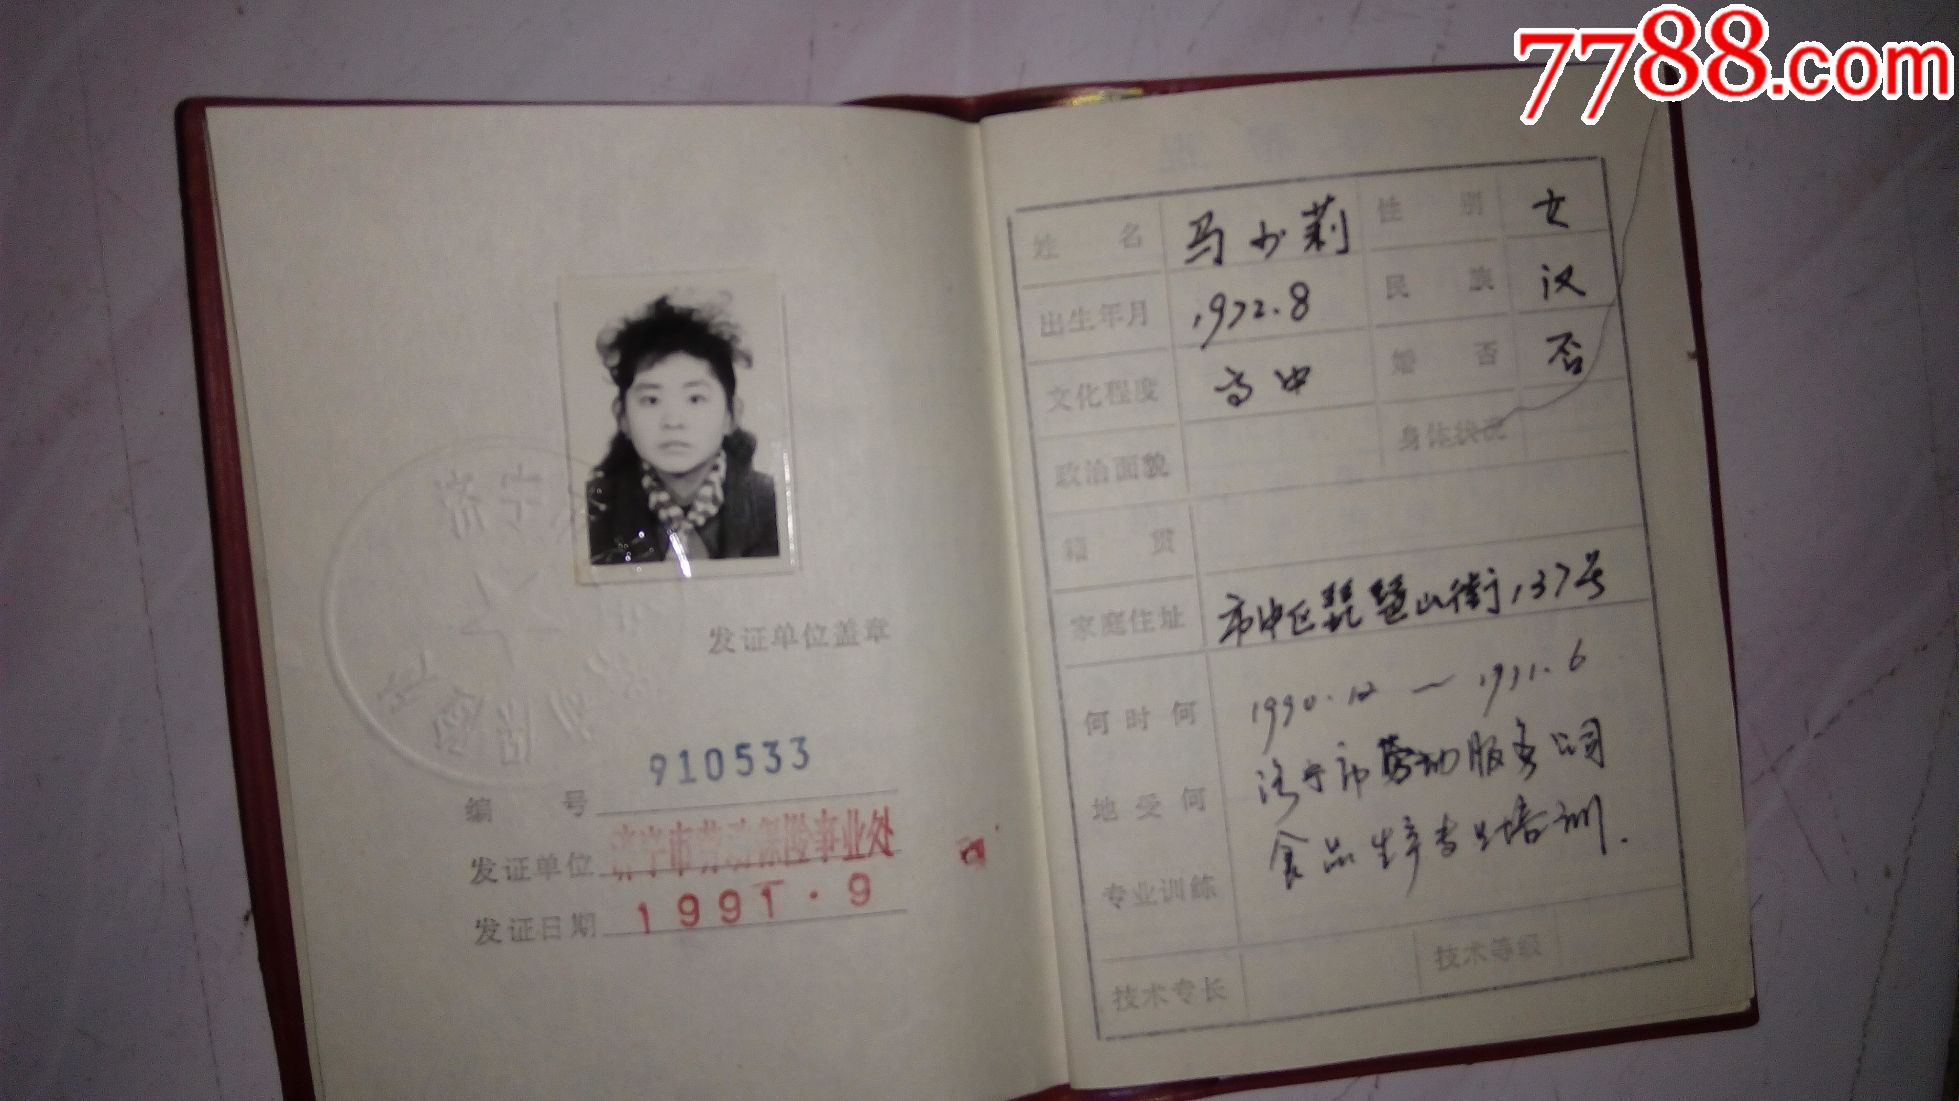 7788.com
济宁
发证单位盖章
编号 910533
发证单位 济宁市劳动保险事业处
发证日期 1991.9
姓名 马少莉 性别 女
出生年月 1972.8 民族 汉
文化程度 高中 婚否 否
政治面貌 身体状况
籍贯
家庭住址 市中区琵琶山街137号
何时何地受何专业训练
1990.12 — 1991.6
济宁市劳动服务公司
食品生产专业培训.
技术专长 技术等级